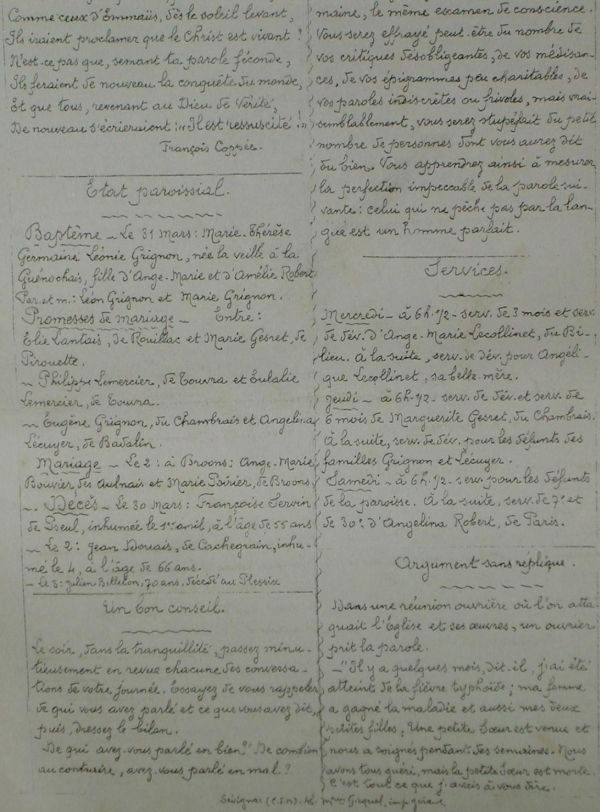 Comme ceux d'Emmaüs, dès le soleil levant,
Ils iraient proclamer que le Christ est vivant ?
N'est-ce pas que, semant ta parole féconde,
Ils feraient de nouveau la conquête du monde,
Et que tous, revenant au Dieu de Vérité,
De nouveau s'écrieraient : « Il est ressuscité ! »
François Coppée.
Etat paroissial.
Baptême – Le 31 mars : Marie-Thérèse
Germaine Léonie Grignon, née la veille à la
Guénochais, fille d'Ange-Marie et d'Amélie Robert
Par. et m. : Léon Grignon et Marie Grignon.
Promesses de mariage – Entre :
Elie Lantais, de Rouillac et Marie Gesret, de
Pirouette.
~ Philippe Lemercier, de Couvra et Eulalie
Lemercier, de Couvra.
~ Eugène Grignon, du Chambrais et Angelina
Lécuyer, de Badalin.
Mariage – Le 2 : à Broons : Ange-Marie
Bouvier des Aulnais et Marie Poirier, de Broons.
~. Décès – Le 30 mars : Françoise Servin
de Dieul, inhumée le 1er avril, à l'âge de 55 ans
~ Le 2 : Jean Douais, de Cachegrain, inhu-
mé le 4, à l'âge de 66 ans.
– Le 3 : Julien Bittelon, 70 ans, décédé au Plessix
Un bon conseil.
Le soir, dans la tranquillité, passez minu-
tieusement en revue chacune des conversa-
tions de votre journée. Essayez de vous rappeler
de qui vous avez parlé et ce que vous avez dit,
puis, dressez le bilan.
De qui avez-vous parlé en bien ? De combien
au contraire, avez-vous parlé en mal ?
maine, le même examen de conscience.
Vous serez effrayé peut-être du nombre de
vos critiques désobligeantes, de vos médisan-
ces, de vos épigrammes peu charitables, de
vos paroles indiscrètes ou frivoles, mais vrai-
semblablement, vous serez stupéfait du petit
nombre de personnes dont vous aurez dit
du bien. Vous apprendrez ainsi à mesurer
la perfection impeccable de la parole sui-
vante : celui qui ne pêche pas par la lan-
gue est un homme parfait.
Services.
Mercredi – à 6h.1/2 – serv. de 3 mois et serv.
de dév. d'Ange-Marie Lecollinet, du Bi-
lieu. À la suite, serv. de dév. pour Angéli-
que Lecollinet, sa belle-mère.
Jeudi – à 6h.1/2 – serv. de dév. et serv. de
6 mois de Marguerite Gesret, du Chambrais.
À la suite, serv. de dév. pour les défunts des
familles Grignon et Lécuyer.
Samedi – à 6h.1/2. serv. pour les défunts
de la paroisse. À la suite, serv. de 7e et
de 30e d'Angelina Robert, de Paris.
Argument sans réplique.
Dans une réunion ouvrière où l'on atta-
quait l'Église et ses œuvres, un ouvrier
prit la parole.
– "Il y a quelques mois, dit-il, j'ai été
atteint de la fièvre typhoïde ; ma femme
a gagné la maladie et aussi mes deux
petites filles, Une petite Sœur est venue et
nous a soignés pendant des semaines. Nous
avons tous guéri, mais la petite Sœur est morte.
C'est tout ce que j'avais à vous dire.
Sévignac (C.d.N)